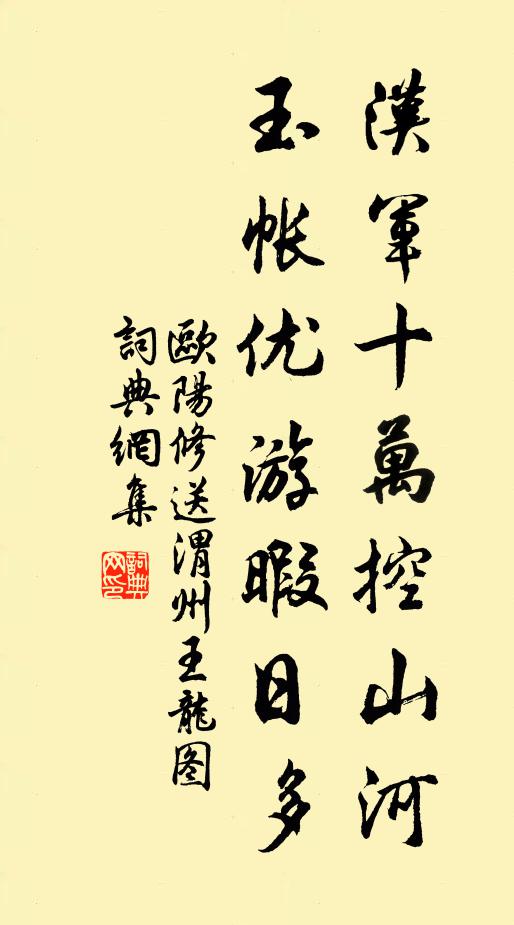 漢軍十萬控山河
玉帐优游暇日多
歐陽修送渭州王龍图
詞典網集
詞典网印